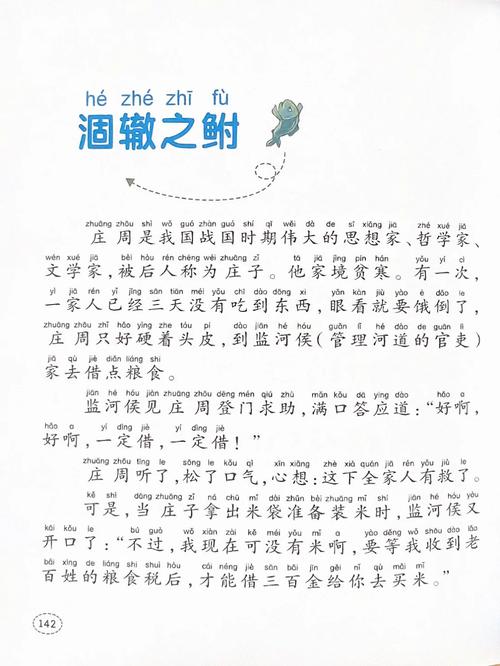 hé zhé zhī fù
涸辙之鲋
zhuāng zhōu shì wǒ guó zhàn guó shí qī wěi dà de sī xiǎng jiā zhé xué jiā
庄周是我国战国时期伟大的思想家、哲学家、
wén xué jiā bèi hòu rén chēng wéi zhuāng zǐ tā jiā jìng pín hán yǒu yí cì
文学家，被后人称为庄子。他家境贫寒。有一次，
yì jiā rén yǐ jīng sān tiān méi yǒu chī dào dōng xi yǎn kàn jiù yào è dǎo le
一家人已经三天没有吃到东西，眼看就要饿倒了，
zhuāng zhōu zhǐ hǎo yìng zhe tóu pí dào jiān hé hóu guǎn lǐ hé dào de guān lì
庄周只好硬着头皮，到监河侯（管理河道的官吏）
jiā qù jiè diǎn liáng shi
家去借点粮食。
jiān hé hóu jiàn zhuāng zhōu dēng mén qiú zhù mǎn kǒu dā yìng dào hǎo a
监河侯见庄周登门求助，满口答应道：“好啊，
hǎo a yí dìng jiè yí dìng jiè
好啊，一定借，一定借！”
zhuāng zhōu tīng le sōng le kǒu qì xīn xiǎng zhè xià quán jiā rén yǒu jiù le
庄周听了，松了口气，心想：这下全家人有救了。
kě shì dāng zhuāng zǐ ná chū mǐ dài zhǔn bèi zhuāng mǐ shí jiān hé hóu yòu
可是，当庄子拿出米袋准备装米时，监河侯又
kāi kǒu le bú guò wǒ xiàn zài kě méi yǒu mǐ a yào děng wǒ shōu dào lǎo
开口了：“不过，我现在可没有米啊，要等我收到老
bǎi xìng de liáng shi shuì hòu cái néng jiè sān bǎi jīn gěi nǐ qù mǎi mǐ
百姓的粮食税后，才能借三百金给你去买米。”
142